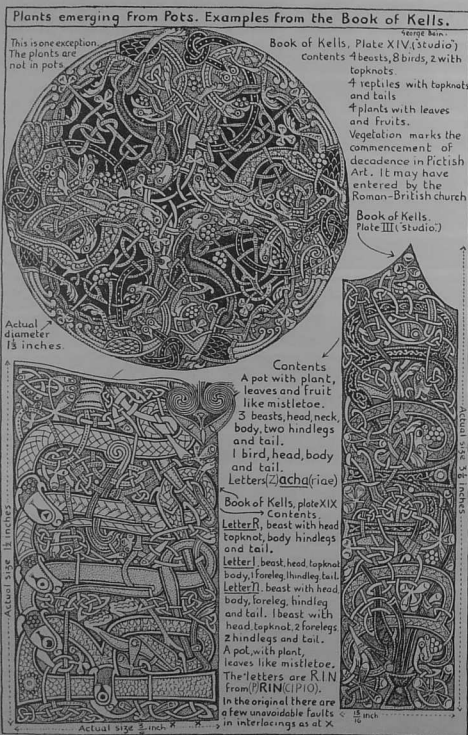 Plants emerging from Pots. Examples from the Book of Kells.
George Bain.
This is one exception.
The plants are
not in pots.
Book of Kells, Plate XIV. ("Studio")
Contents 4 beasts, 8 birds, 2 with
topknots.
4 reptiles with topknots
and tails
4 plants with leaves
and fruits.
Vegetation marks the
commencement of
decadence in Pictish
Art. It may have
entered by the
Roman-British church
Book of Kells.
Plate III ("Studio")
Actual
diameter
1⅞ inches.
Contents
A pot with plant,
leaves and fruit
like mistletoe.
3 beasts, head, neck,
body, two hindlegs
and tail.
1 bird, head, body
and tail.
Letters (Z)acha(riae)
Book of Kells, plate XIX
Contents.
Letter R, beast with head
topknot, body hindlegs
and tail.
Letter I, beast, head, topknot
body, 1 foreleg, 1 hindleg, tail.
Letter N. beast with head,
body, foreleg, hindleg
and tail. 1 beast with
head, topknot, 2 forelegs
2 hindlegs and tail.
A pot, with plant,
leaves like mistletoe.
The letters are R.I.N
from (P)RIN(CIPIO).
In the original there are
a few unavoidable faults
in interlacings as at X
Actual size inches
Actual size inch
X X
Actual size inches
15/16 inch